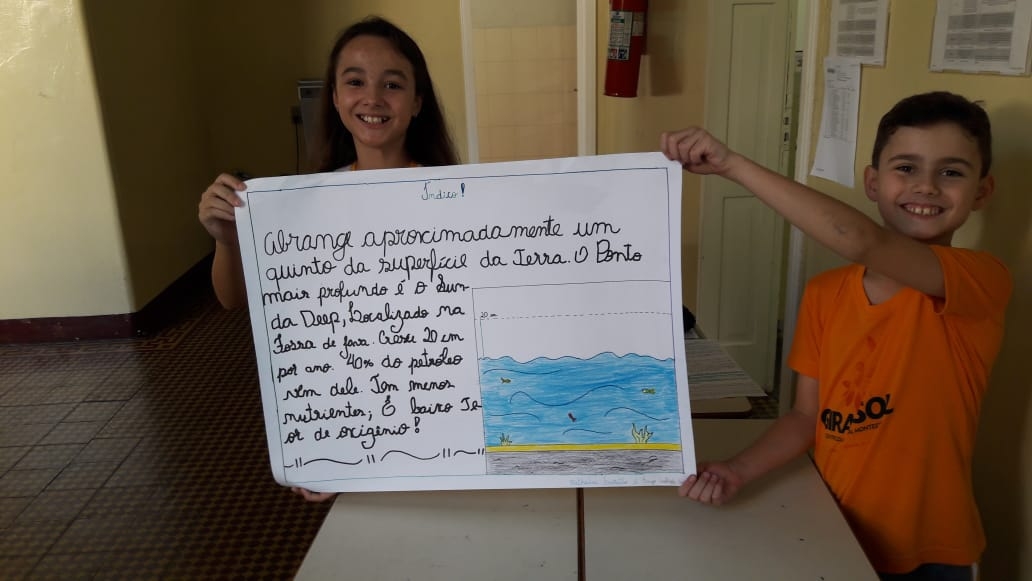 Índico!
Abrange aproximadamente um
quinto da superfície da Terra. O Ponto
mais profundo é o Sun-
da Deep, Localizado na
Fossa de Java. Cresce 20 cm
por ano. 40% do petroleo
vem dele. Tem menos
nutrientes, É baixo Te
or de oxigênio!
20 cm
GIRASSOL